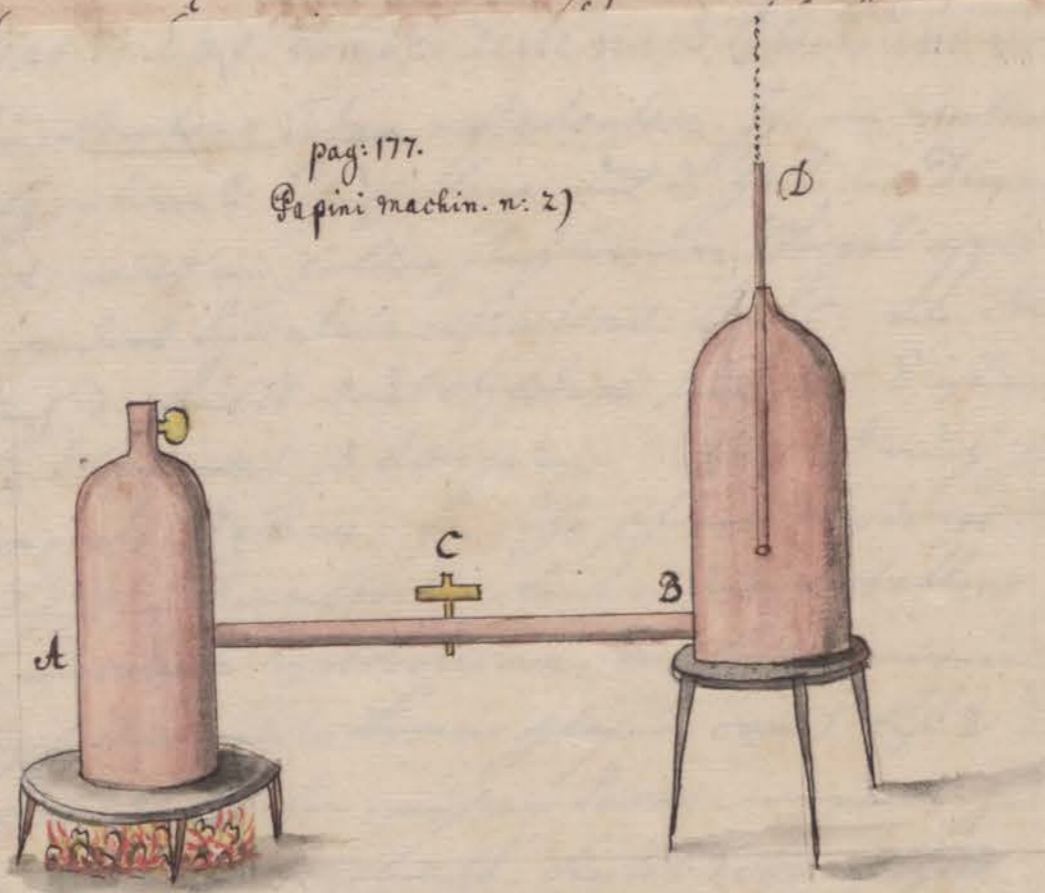 pag: 177.
Papini machin. n: 2)
D
C
B
A